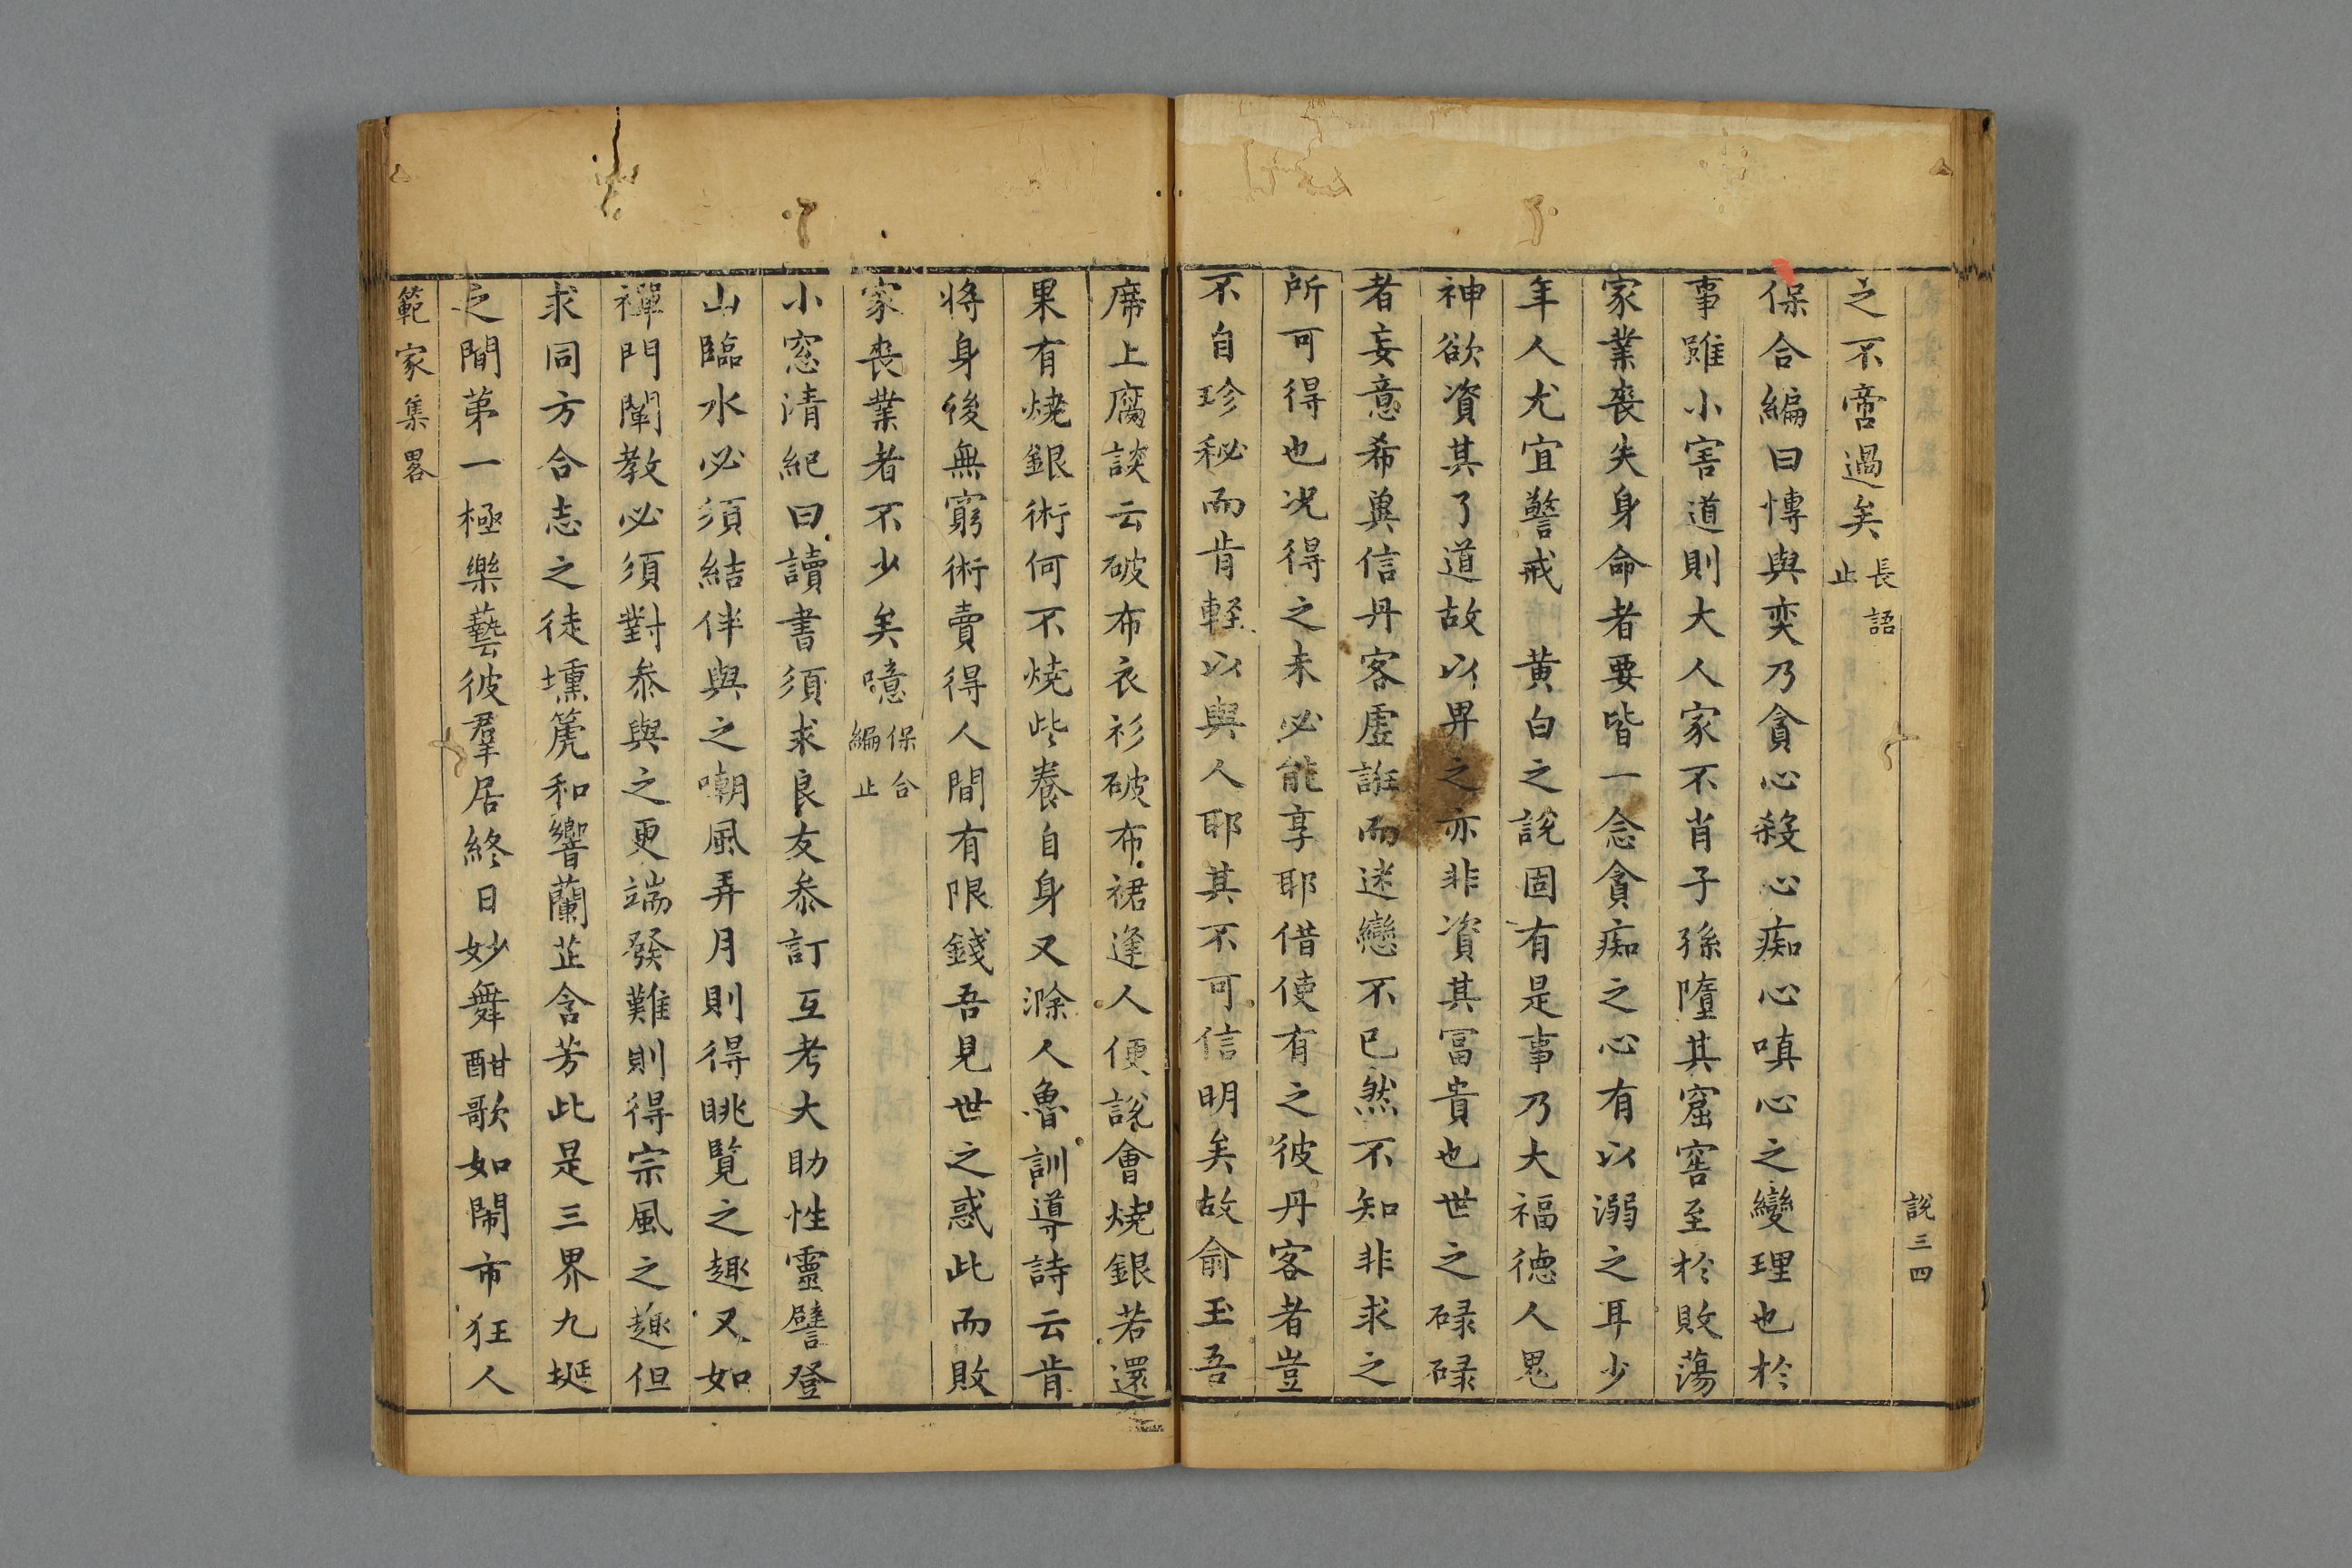 說三四
之不啻過矣長語止
保合編曰愽與奕乃貪心殺心痴心嗔心之變理也於
事雖小害道則大人家不肖子孫墮其窟窖至於敗蕩
家業喪失身命者要皆一念貪痴之心有以溺之耳少
年人尤宜警戒 黄白之說固有是事乃大福德人鬼
神欲資其了道故以畀之亦非資其冨貴也世之碌碌
者妄意希兾信丹客虛誑而迷戀不已然不知非求之
所可得也况得之未必能享耶借使有之彼丹客者豈
不自珍秘而肯軽以與人耶其不可信明矣故俞玉吾
席上腐談云破布衣衫破布裙逢人便說會燒銀若還
果有燒銀術何不燒些養自身又滁人魯訓導詩云肯
將身後無窮術賣得人間有限錢吾見世之惑此而敗
家喪業者不少矣噫保合編止
小窓清紀曰讀書須求良友叅訂互考大助性靈譬登
山臨水必須結伴與之嘲風弄月則得眺覽之趣又如
禪門闡教必須對叅與之更端發難則得宗風之趣但
求同方合志之徒壎篪和響蘭芷含芳此是三界九埏
之間第一極樂藝彼羣居終日妙舞酣歌如鬧市狂人
範家集畧